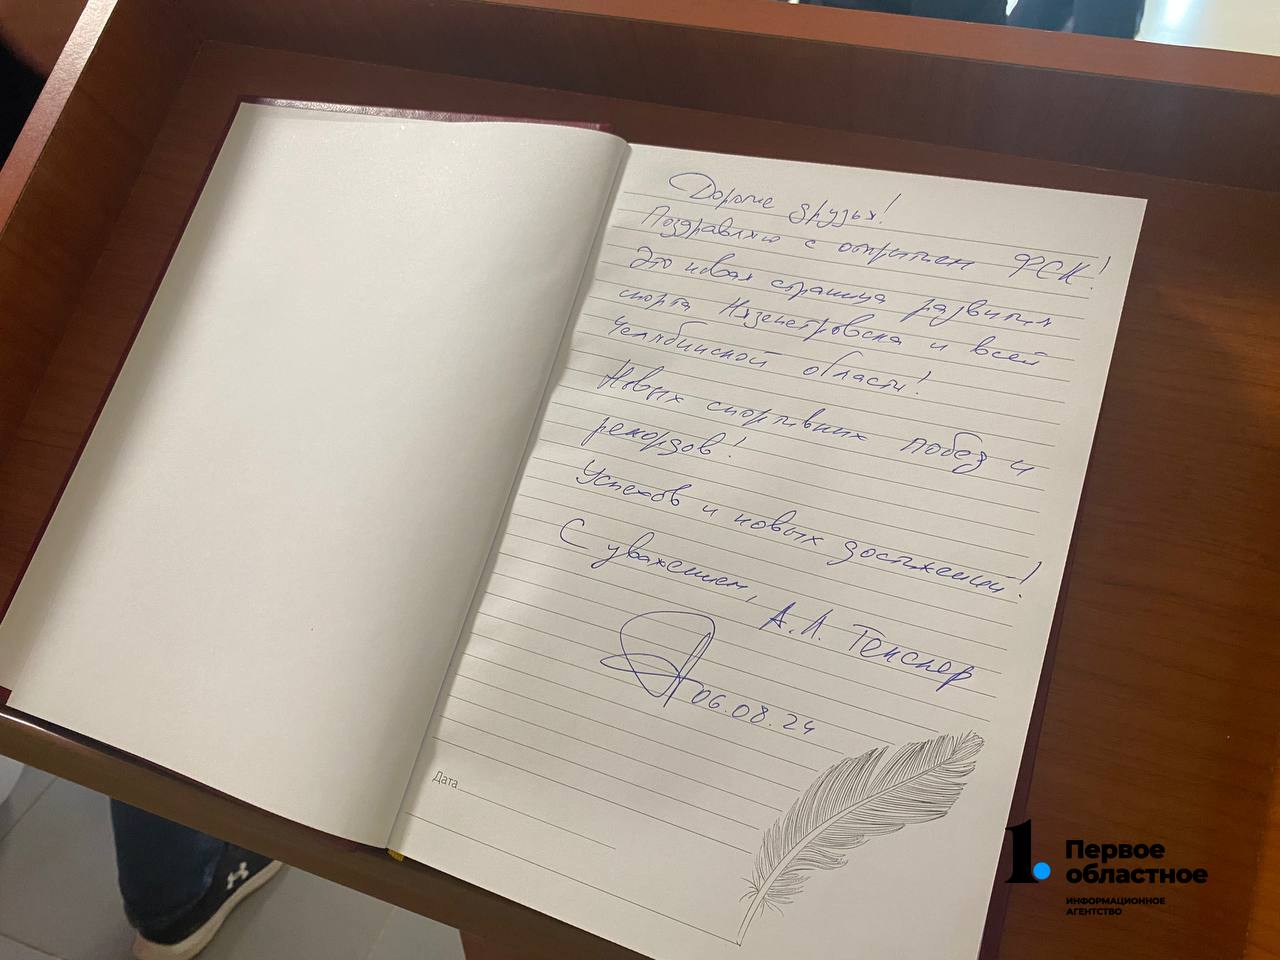 Дорогие друзья!
Поздравляю с открытием ФСК!
Это новая страница развития
спорта Нязепетровска и всей
Челябинской области!
Новых спортивных побед и
рекордов!
Успехов и новых достижений!
С уважением, А.Л. Текслер
06.08.24
Дата
1.
Первое
областное
ИНФОРМАЦИОННОЕ
АГЕНТСТВО